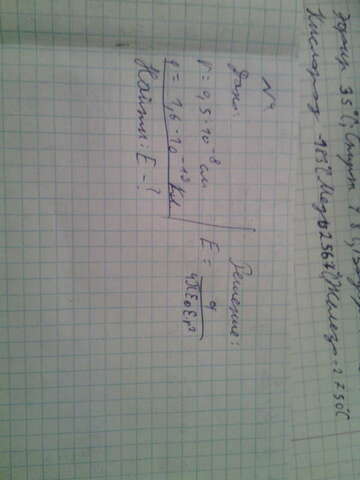 Эфир 35°C, Спирт 78
Кислород -183°C, Медь 2567°C, Железо 2750°C
№
Дано:
r = 0,5·10⁻⁸ см
q = 1,6·10⁻¹⁹ Кл
Найти: E - ?
Решение:
E = q / 4πε₀εr²